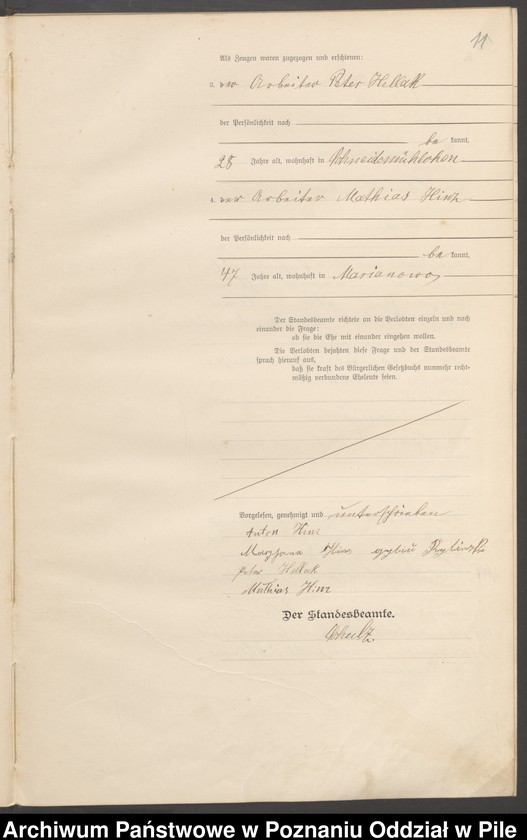 11
Als Zeugen waren zugezogen und erschienen:
3. der Arbeiter Peter Hellak
der Persönlichkeit nach
be kannt,
28 Jahre alt, wohnhaft in Schneidemühlchen
4. der Arbeiter Mathias Hinz
der Persönlichkeit nach
be kannt,
47 Jahre alt, wohnhaft in Marianowo,
Der Standesbeamte richtete an die Verlobten einzeln und nach
einander die Frage:
ob sie die Ehe mit einander eingehen wollen.
Die Verlobten bejahten diese Frage und der Standesbeamte
sprach hierauf aus,
daß sie kraft des Bürgerlichen Gesetzbuchs nunmehr recht-
mäßig verbundene Eheleute seien.
Vorgelesen, genehmigt und unterschrieben
Anton Hinz
Maryanna Hinz
Peter Hellak
Mathias Hinz
Der Standesbeamte.
Schulz.
Archiwum Państwowe w Poznaniu Oddział w Pile